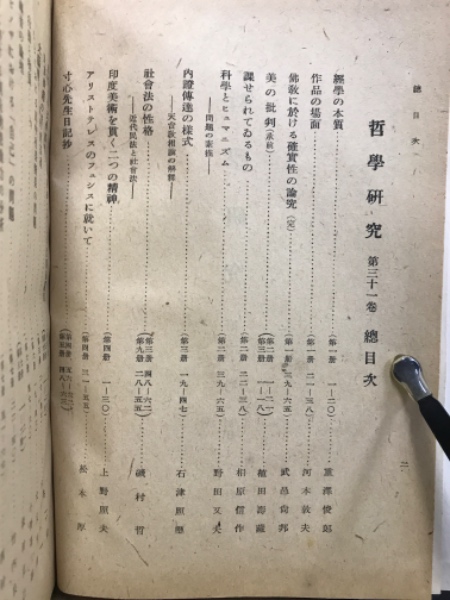 總目次
哲學研究 第三十一卷 總目次
經學の本質……(第一册 一—二〇) 重澤俊郎
作品の場面……(第一册 二一—三八) 河本敦夫
佛敎に於ける確實性の論究(完)……(第一册 三九—六五) 武邑尙邦
美の批判(承前)……(第二册 一—二一)(第三册 一—一八) 植田壽藏
課せられてゐるもの……(第二册 二二—三八) 相原信作
科學とヒューマニズム……(第二册 三九—六五) 野田又夫
——問題の素描——
內證傳達の樣式……(第三册 一九—四七) 石津照璽
——天台敎相論の解釋——
社會法の性格……(第三册 四八—六二)(第九册 二八—五五) 磯村哲
——近代民族と社會法——
印度美術を貫く二つの精神……(第四册 一—三〇) 上野照夫
アリストテレスのフュシスに就いて……(第四册 三一—五五) 松本厚
寸心先生日記抄……(第四册 五六—六二)
二